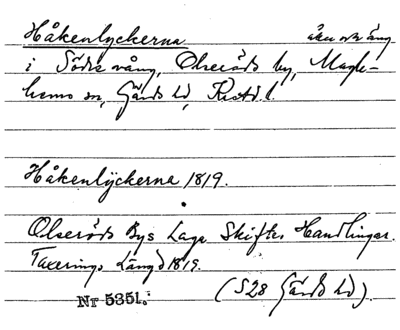 Håkenlyckerna åker och äng
i Södra vång, Olseröds by, Magle-
hems sn, Gärds hd, Krist. l.
Håkenlÿckerna 1819.
Olseröds Bys Laga Skiftes Handlingar.
Taxerings Längd 1819.
(S28 Gärds hd).
Nr 5351.